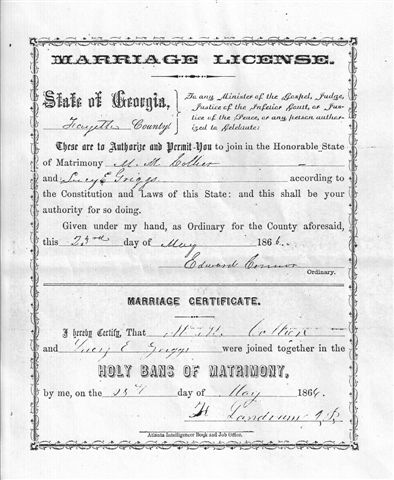 MARRIAGE LICENSE.
State of Georgia,
Fayette County.
To any Minister of the Gospel, Judge,
Justice of the Inferior Court, or Jus-
tice of the Peace, or any person author-
ized to Celebrate:
These are to Authorize and Permit You to join in the Honorable State
of Matrimony M. M. Collier
and Lucy E Griggs according to
the Constitution and Laws of this State: and this shall be your
authority for so doing.
Given under my hand, as Ordinary for the County aforesaid,
this 23rd day of May 1866.
Edward Connor
Ordinary.
MARRIAGE CERTIFICATE.
I hereby Certify, That
and Lucy E Griggs were joined together in the
HOLY BANS OF MATRIMONY,
by me, on the day of May 1866.
Landrum J.P.
Atlanta Intelligencer Book and Job Office.